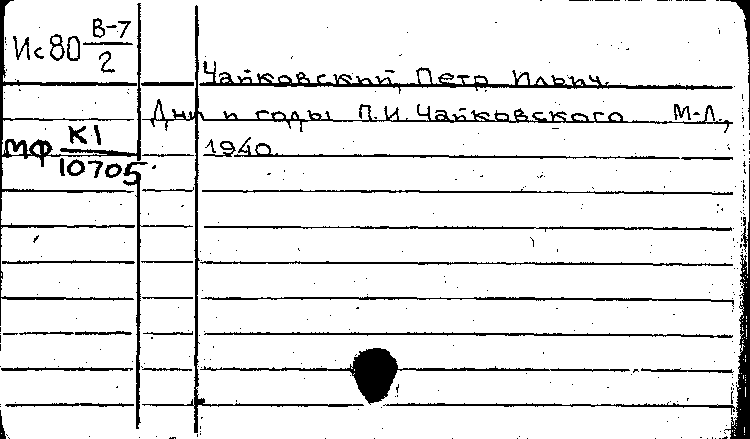 Ис80 В-7/2
Чайковский, Петр Ильич.
Дни и годы П.И. Чайковского М-Л.,
1940.
МФ К1/10705